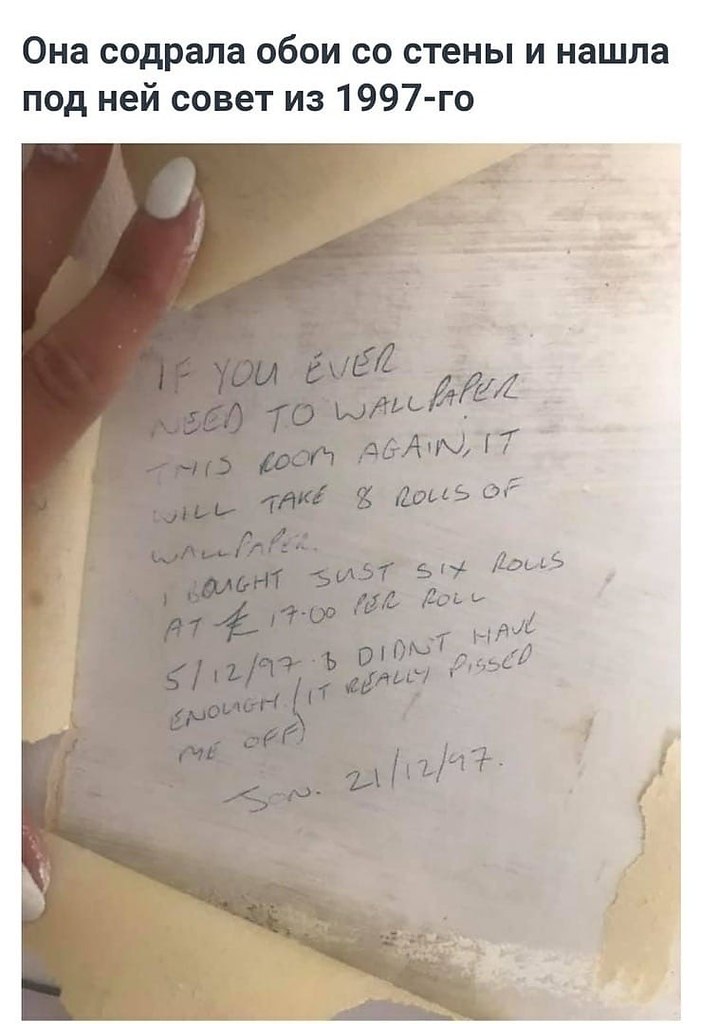 Она содрала обои со стены и нашла
под ней совет из 1997-го
IF YOU EVER
NEED TO WALLPAPER
THIS ROOM AGAIN, IT
WILL TAKE 8 ROLLS OF
WALLPAPER.
I BOUGHT JUST SIX ROLLS
AT £17.00 PER ROLL
5/12/97 & DIDN'T HAVE
ENOUGH (IT REALLY PISSED
ME OFF)
JON. 21/12/97.